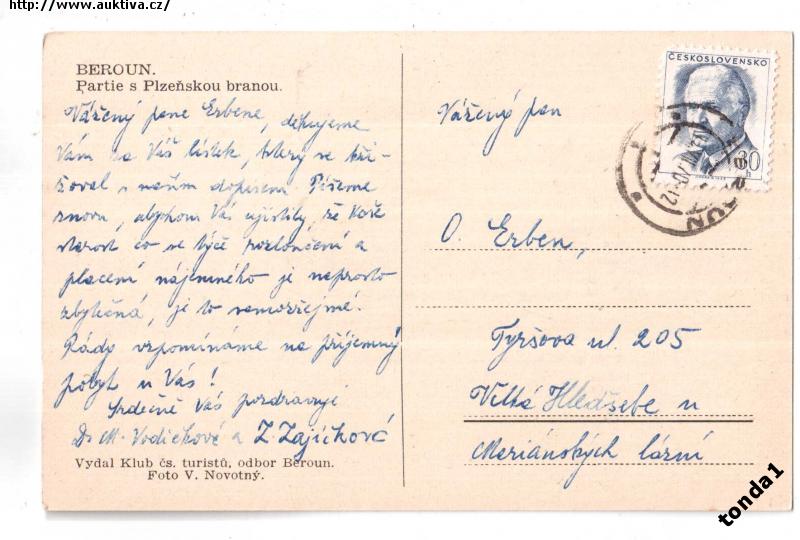 http://www.auktiva.cz/
BEROUN.
Partie s Plzeňskou branou.
Vážený pane Erbene, děkujeme
Vám za Váš lístek, který se kří-
žoval s naším dopisem. Píšeme
znovu, abychom Vás ujistily, že Vaše
starost co se týče rozloučení a
placení nájemného je naprosto
zbytečná, je to samozřejmé.
Rády vzpomínáme na příjemný
pobyt u Vás!
Srdečně Vás pozdravují
Dr M. Vodičková a Z. Zajíčková
Vydal Klub čs. turistů, odbor Beroun.
Foto V. Novotný.
Vážený pan
O. Erben,
Tyršova ul. 205
Velká Hleďsebe u
Mariánských lázní
ČESKOSLOVENSKO
30
h
tonda1